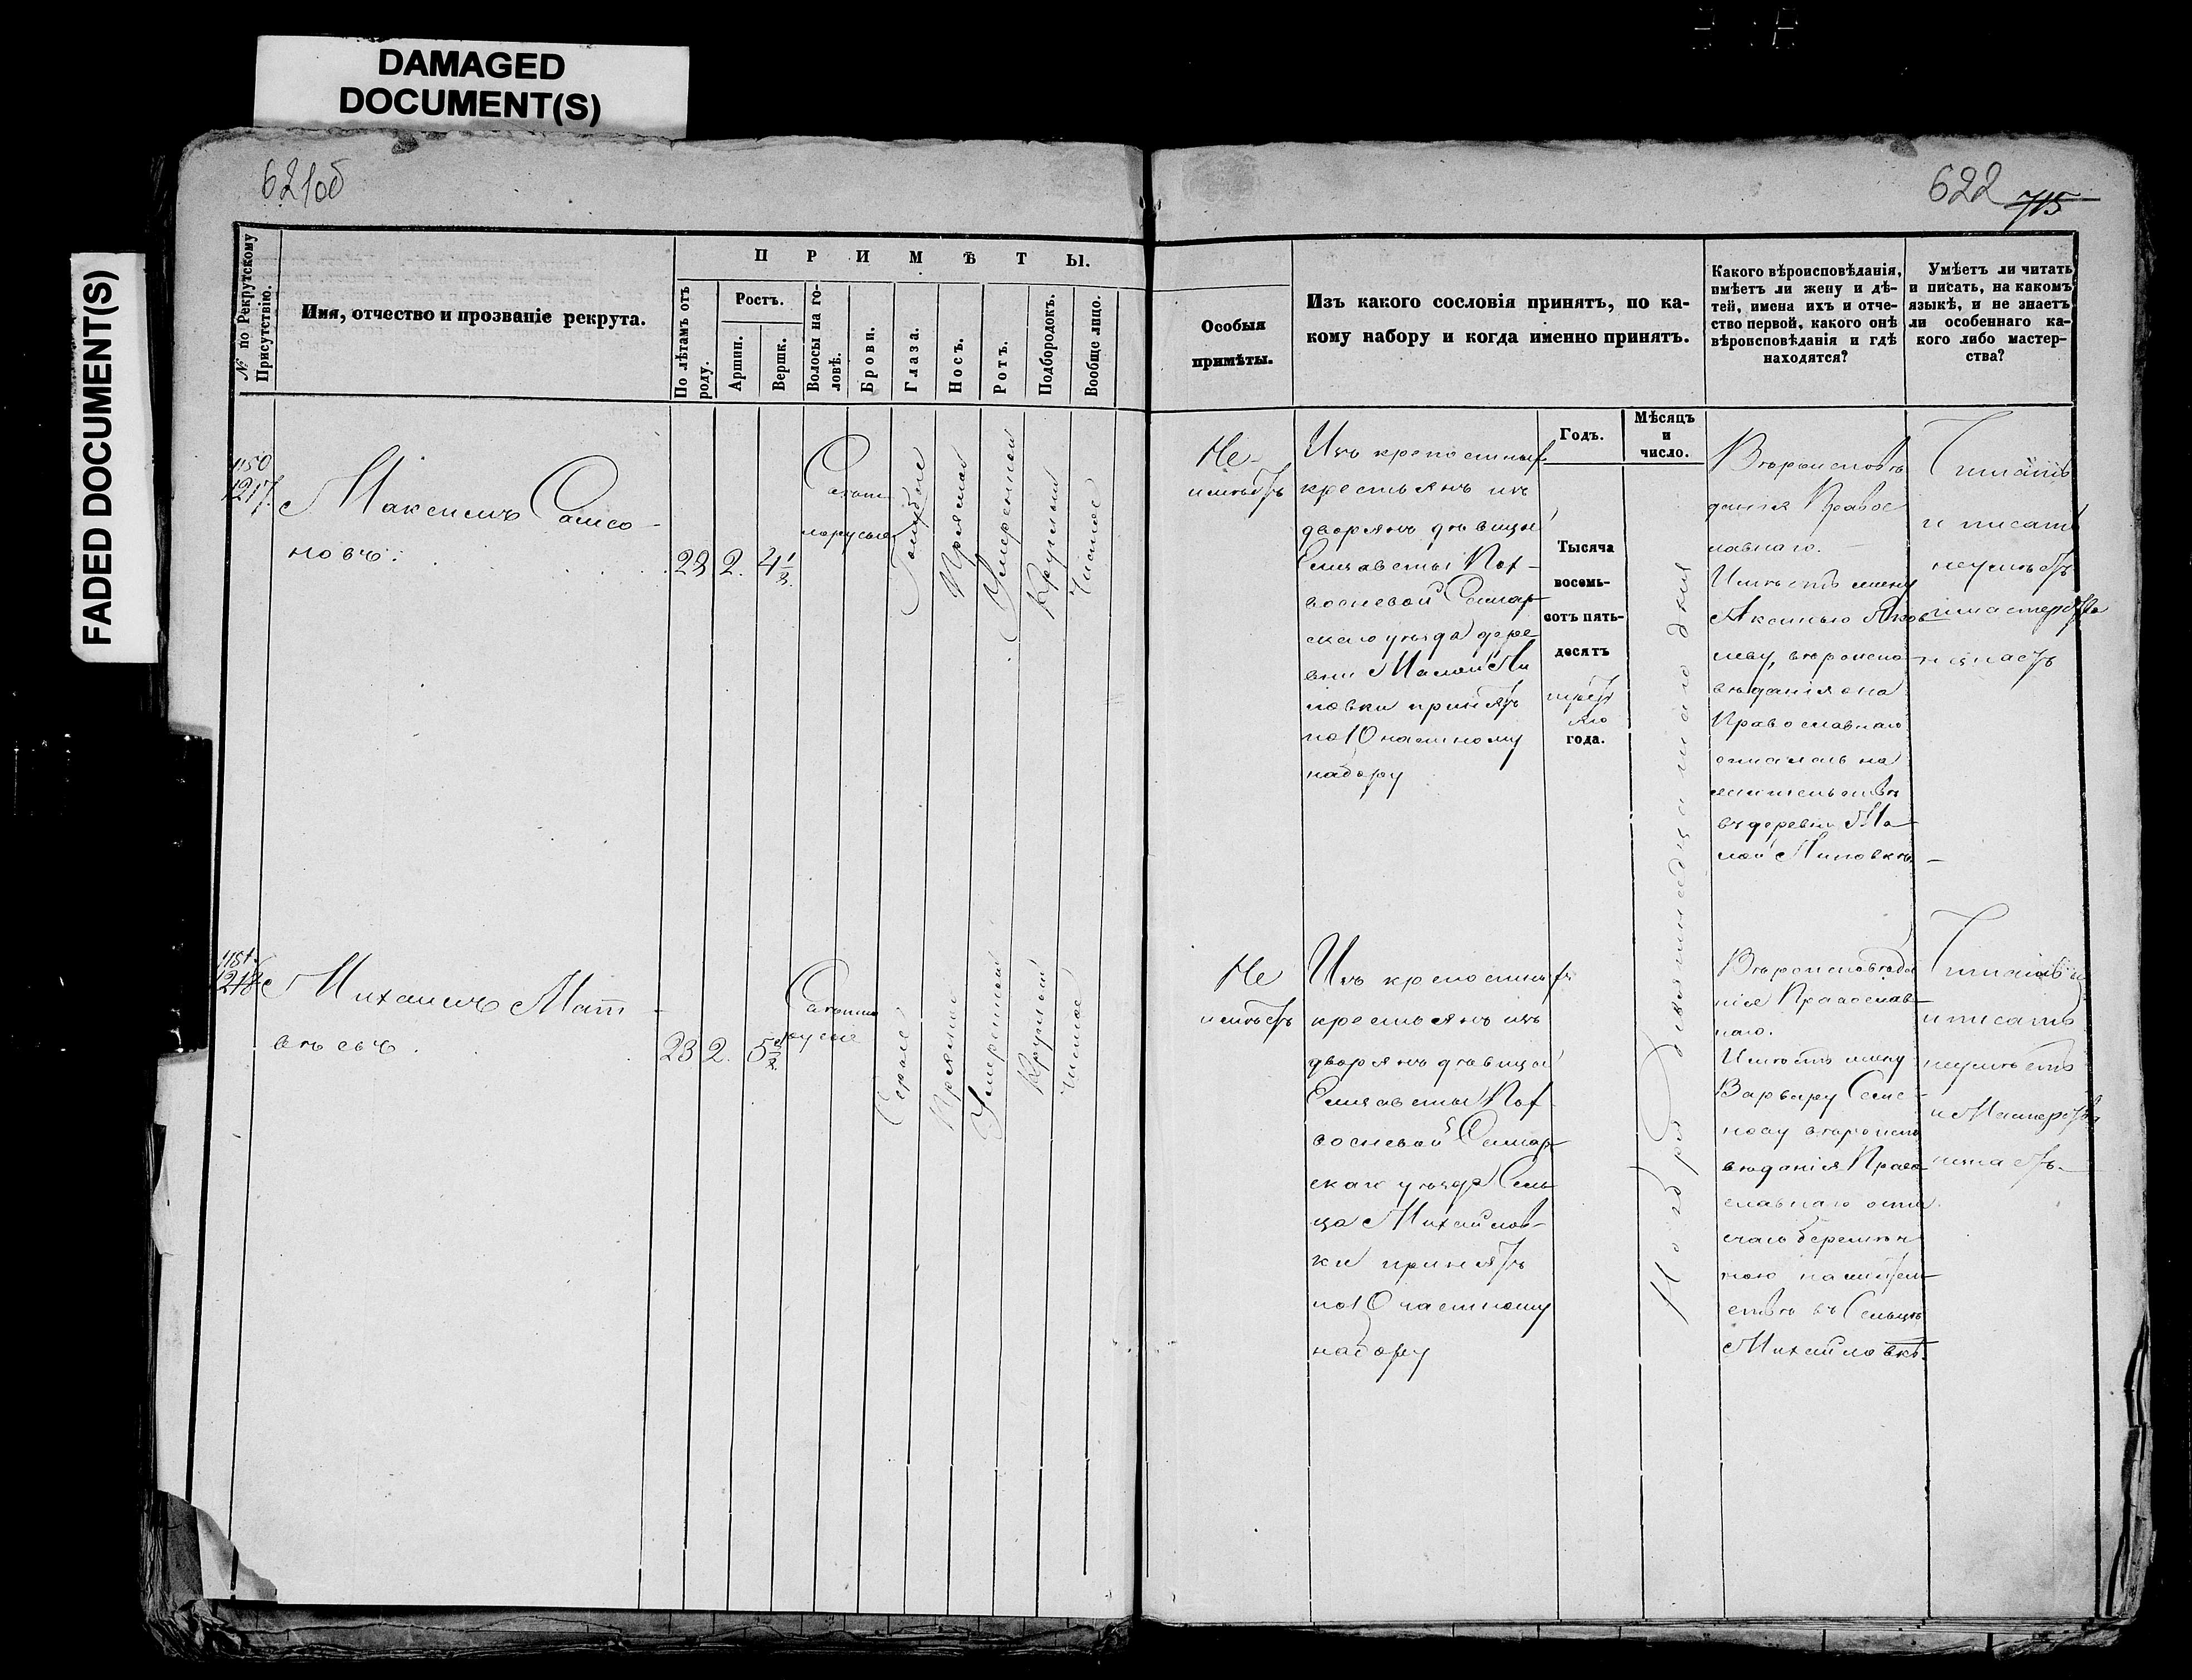 DAMAGED
DOCUMENT(S)
FADED DOCUMENT(S)
621об
622
715
№ по Рекрутскому
Присутствію.
Имя, отчество и прозваніе рекрута.
ПРИМѢТЫ.
По лѣтамъ отъ
роду.
Ростъ.
Аршин.
Вершк.
Волосы на го-
ловѣ.
Брови.
Глаза.
Носъ.
Ротъ.
Подбородокъ.
Вообще лицо.
Особыя
примѣты.
Изъ какого сословія принятъ, по ка-
кому набору и когда именно принятъ.
Какого вѣроисповѣданія,
имѣетъ ли жену и дѣ-
тей, имена ихъ и отче-
ство первой, какого онѣ
вѣроисповѣданія и гдѣ
находятся?
Умѣетъ ли читать
и писать, на какомъ
языкѣ, и не знаетъ
ли особеннаго ка-
кого либо мастер-
ства?
Годъ.
Мѣсяцъ
и
число.
1150
1217
Максимъ Самсо-
новъ.
28
2.
4 1/8
Свѣтло
русые
Голубые
Прямой
Умеренный
Круглый
Чистое
Не
имѣетъ
Изъ крепостныхъ
крестьянъ изъ
дворянъ дѣвицы
Елизаветы
Самар
скаго уѣзда дере
вни Малой Ли
повки принятъ
по 10 частному
набору
Тысяча
восемь-
сотъ пять-
десятъ
третья
го
года.
Ноября девятнадцатаго дня
Вѣроисповѣ
данія Правос
лавнаго.
Имѣетъ жену
Аксинью Яков
леву, вѣроиспо
вѣданія она
Православнаго
осталась на
жительствѣ
въ деревни Ма
лой Липовкѣ.
Читать
и писать
неумѣетъ
и мастерства
незнаетъ
1151.
1218
Михаилъ Матт
вѣевъ.
23
2.
Свѣтло
русые
Серые
Прямой
Умеренный
Круглый
Чистое
Не
имѣетъ
Изъ крепостныхъ
крестьянъ изъ
дворянъ дѣвицы
Елизаветы
Самар
скаго уѣзда Сель
ца Михайлов-
ки принятъ
по 10 частному
набору
Вѣроисповѣда
нія Православ
наго.
Имѣетъ жену
Варвару Семе
нову вѣроиспо
вѣданія Право
славнаго оста
лась беремѣн
ною на житель
ствѣ въ Сельцѣ
Михайловкѣ.
Читать
и писать
неумѣетъ
и Мастерства
незнаетъ.